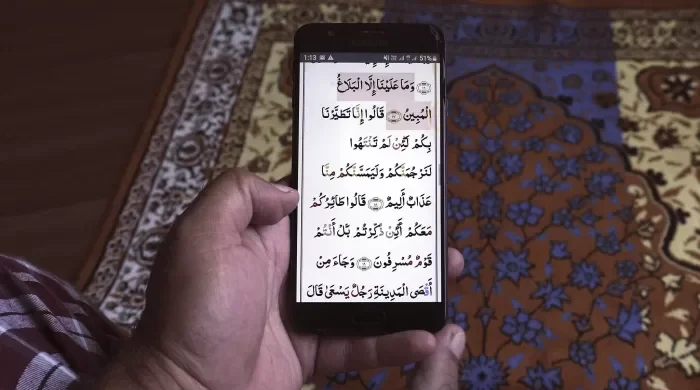 1:13 51%
وَمَا عَلَيْنَا إِلَّا الْبَلَاغُ
الْمُبِينُ ۝ قَالُوا إِنَّا تَطَيَّرْنَا
بِكُمْ لَئِنْ لَمْ تَنْتَهُوا
لَنَرْجُمَنَّكُمْ وَلَيَمَسَّنَّكُمْ مِنَّا
عَذَابٌ أَلِيمٌ ۝ قَالُوا طَائِرُكُمْ
مَعَكُمْ أَئِنْ ذُكِّرْتُمْ بَلْ أَنْتُمْ
قَوْمٌ مُسْرِفُونَ ۝ وَجَاءَ مِنْ
أَقْصَى الْمَدِينَةِ رَجُلٌ يَسْعَىٰ قَالَ